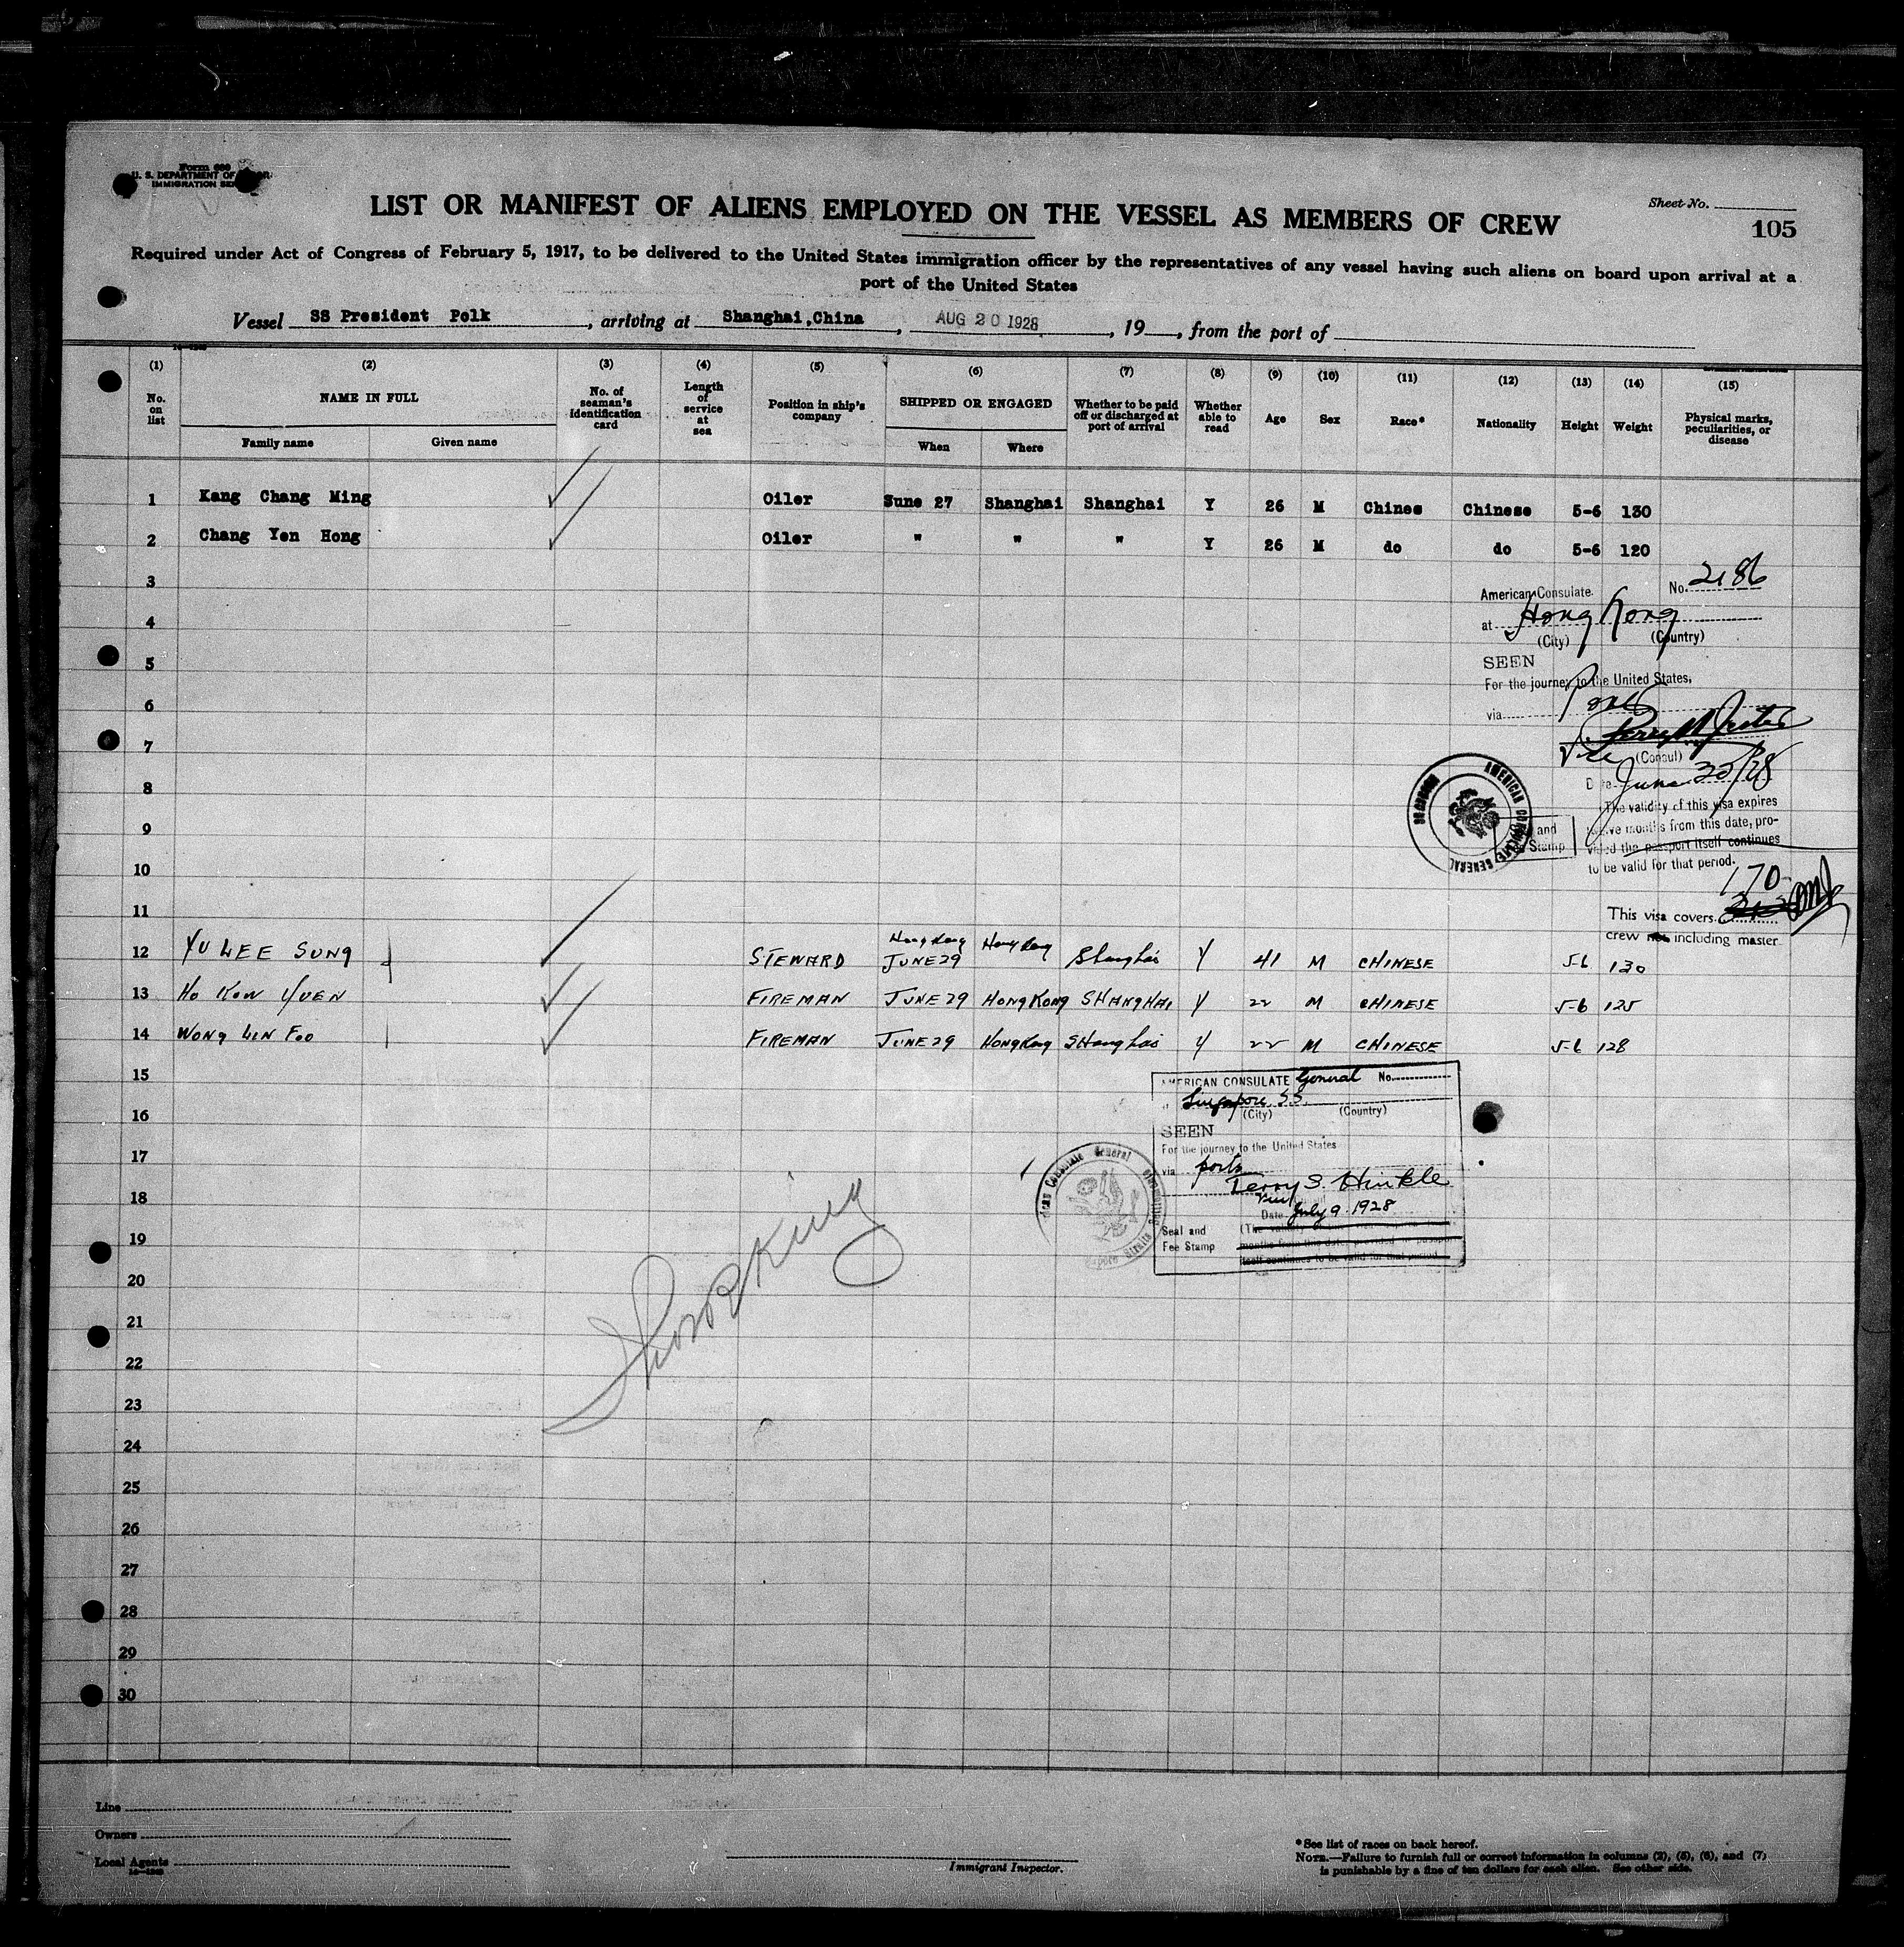 Form 680
U. S. DEPARTMENT OF
IMMIGRATION
LIST OR MANIFEST OF ALIENS EMPLOYED ON THE VESSEL AS MEMBERS OF CREW
Sheet No.
105
Required under Act of Congress of February 5, 1917, to be delivered to the United States immigration officer by the representatives of any vessel having such aliens on board upon arrival at a
port of the United States
Vessel SS President Polk, arriving at Shanghai,China, AUG 20 1928, 19, from the port of
(1) (2) (3) (4) (5) (6) (7) (8) (9) (10) (11) (12) (13) (14) (15)
No. on list
NAME IN FULL
Family name Given name
No. of seaman's identification card
Length of service at sea
Position in ship's company
SHIPPED OR ENGAGED
When Where
Whether to be paid off or discharged at port of arrival
Whether able to read
Age
Sex
Race*
Nationality
Height
Weight
Physical marks, peculiarities, or disease
1 Kang Chang Ming Oiler Sune 27 Shanghai Shanghai Y 26 M Chines Chinese 5-6 130
2 Chang Yen Hong Oiler " " " Y 26 M do do 5-6 120
3
4
5
6
7
8
9
10
11
American Consulate No. 2186
at Hong Kong
(City) (Country)
SEEN
For the journey to the United States,
via
Vice (Consul)
Date June 30/28
The validity of this visa expires
twelve months from this date, pro-
vided the passport itself continues
to be valid for that period.
and
Stamp
AMERICAN CONSULATE GENERAL
170
This visa covers
crew not including master
12 YU LEE SUNG STEWARD Hong Kong JUNE 29 Hong Kong Shanghai Y 41 M CHINESE 5-6 130
13 HO KOW YUEN FIREMAN JUNE 29 HONG KONG SHANGHAI Y 22 M CHINESE 5-6 125
14 WONG LIN FOO FIREMAN JUNE 29 HONG Kong SHanghai Y 22 M CHINESE 5-6 128
15
16
17
18
19
20
21
22
23
24
25
26
27
28
29
30
AMERICAN CONSULATE General No.
Singapore S.S.
(City) (Country)
SEEN
For the journey to the United States
via ports
Terry S. Hinkle
Date July 9 1928
Seal and
Fee Stamp
(The validity
months from this date, provided
itself continues to be valid for that period
Line
Owners
Local Agents
Immigrant Inspector.
*See list of races on back hereof.
NOTE.—Failure to furnish full or correct information in columns (2), (5), (6), and (7)
is punishable by a fine of ten dollars for each alien. See other side.